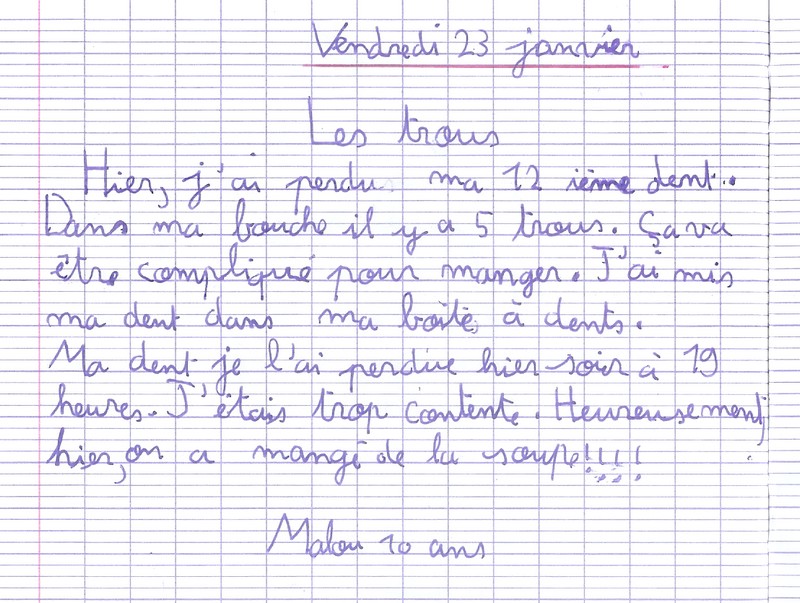 Vendredi 23 janvier
Les trous
Hier, j'ai perdu ma 12 ième dent..
Dans ma bouche il y a 5 trous. Ça va
être compliqué pour manger. J'ai mis
ma dent dans ma boîte à dents.
Ma dent je l'ai perdue hier soir à 19
heures. J'étais trop contente. Heureusement,
hier, on a mangé de la soupe!!!!
Malou 10 ans